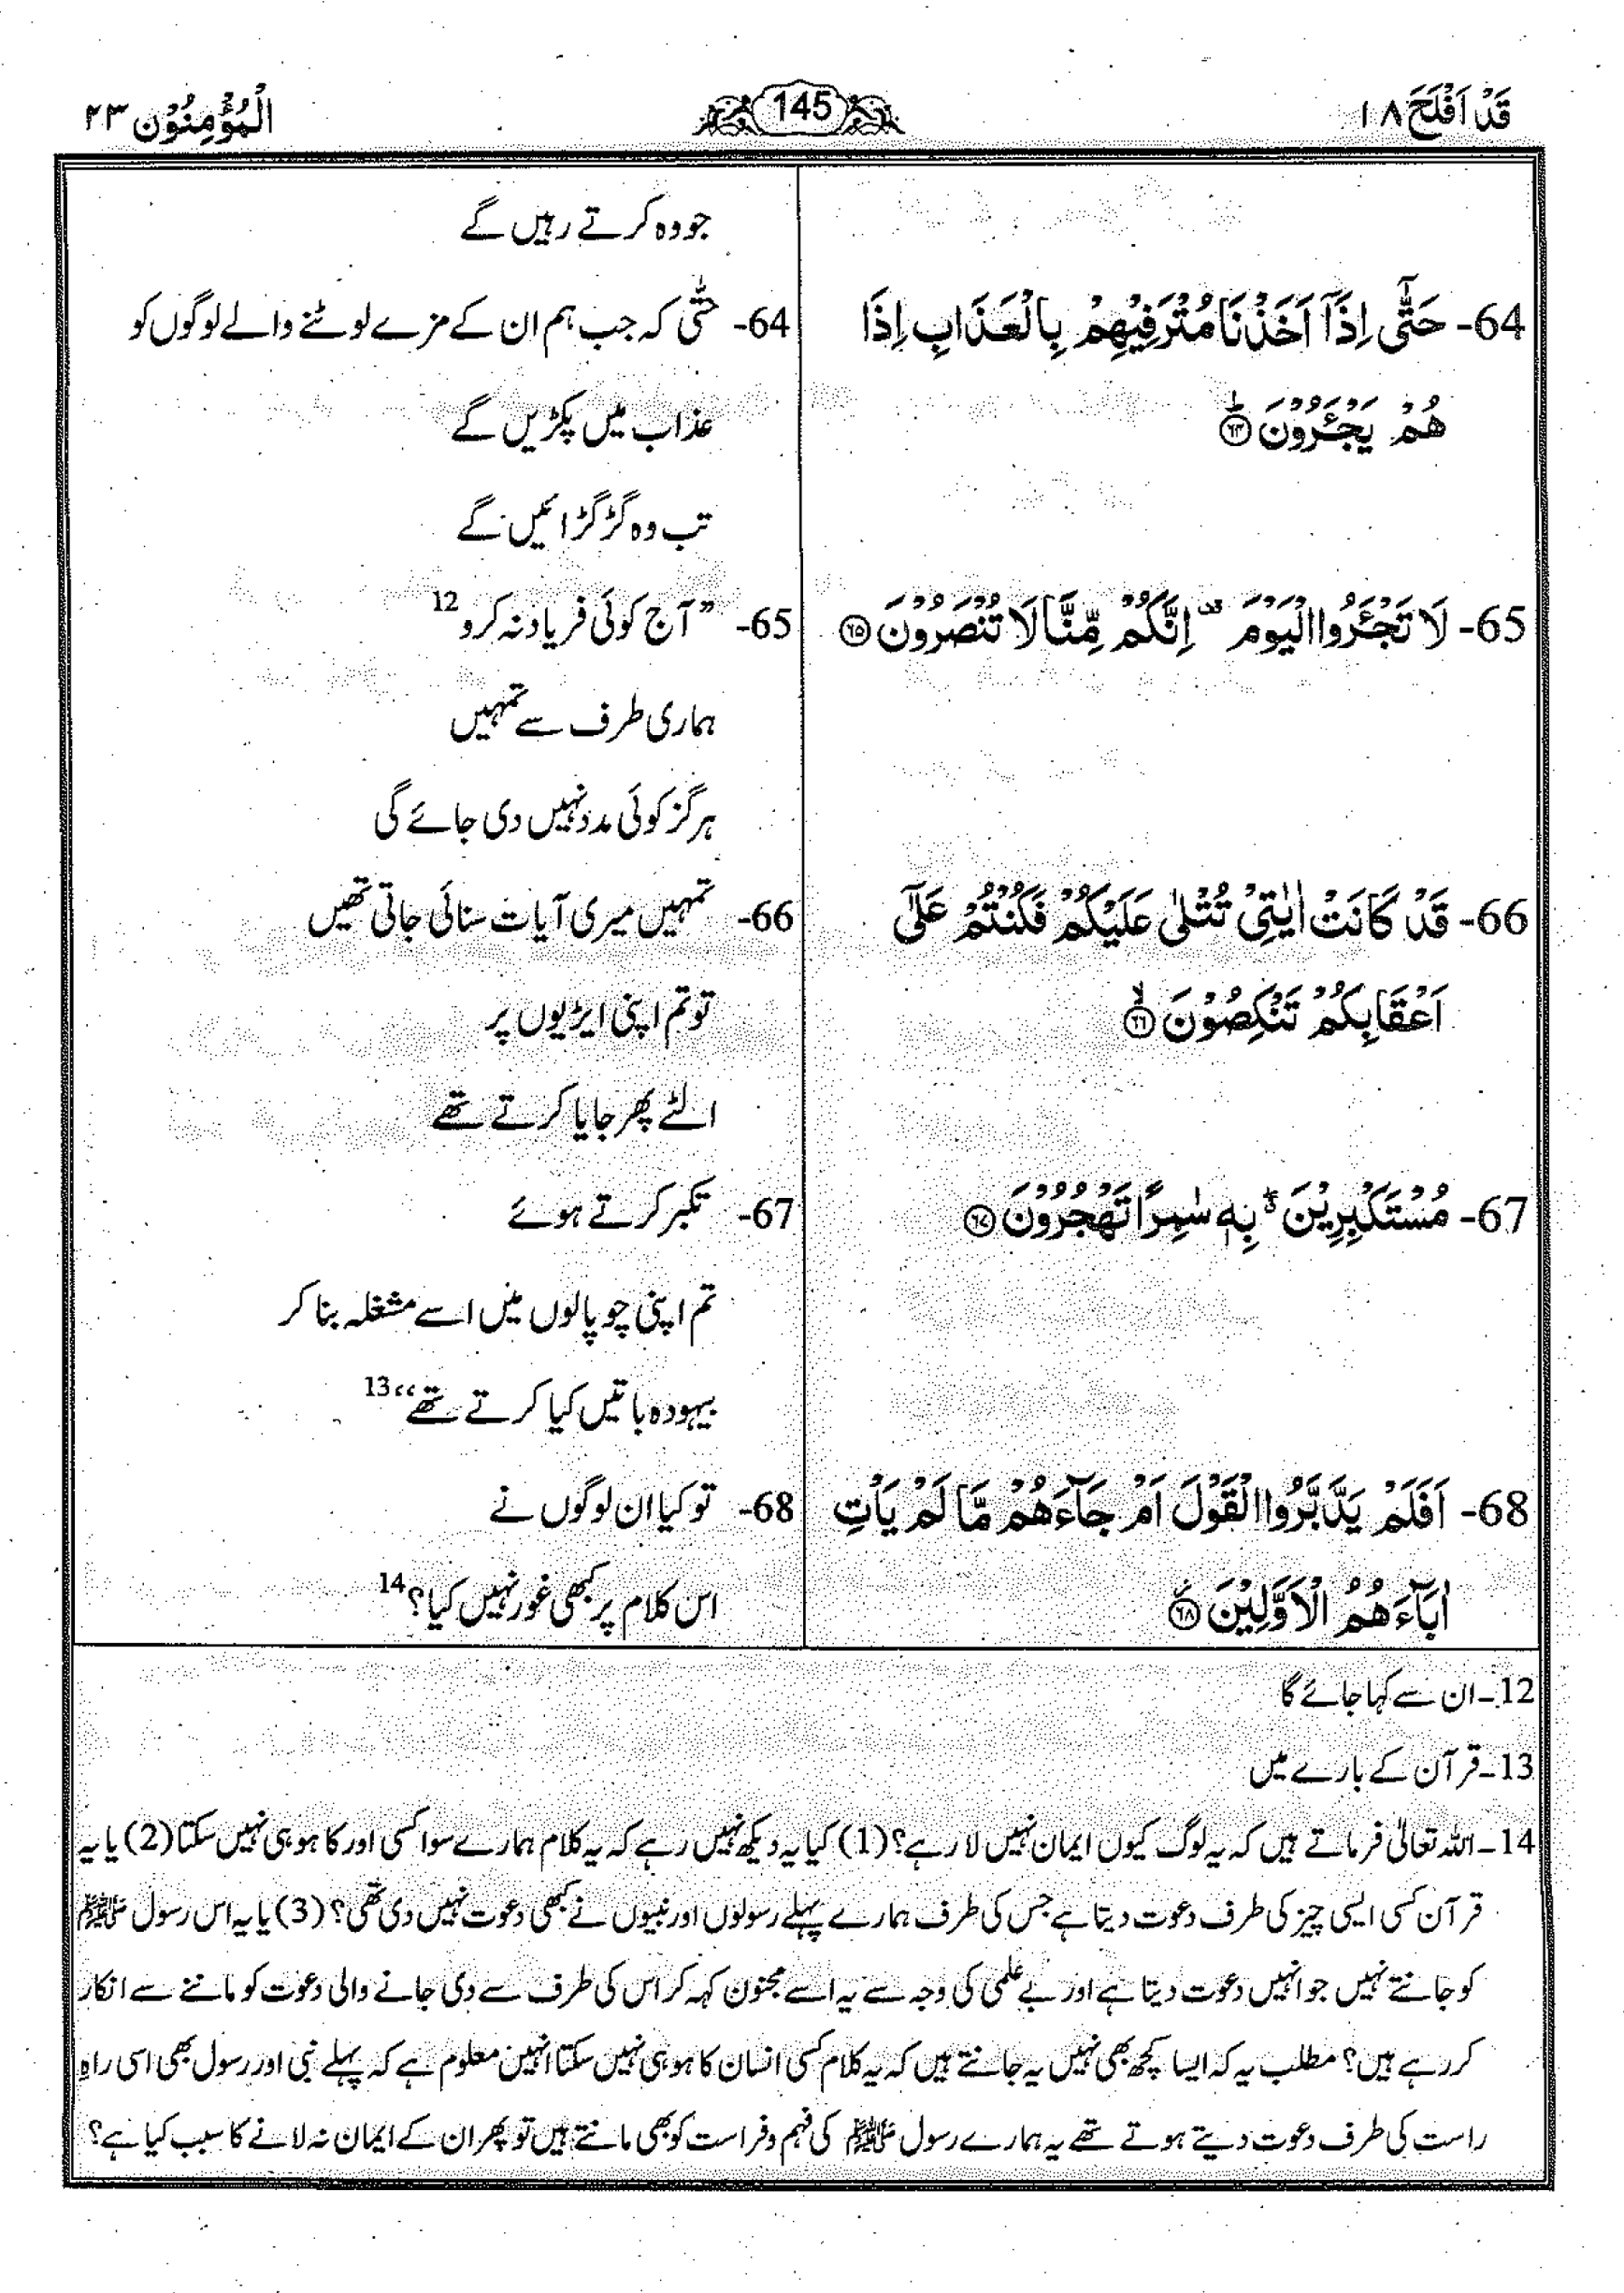 قَدْ اَفْلَحَ ۱۸
145
الْمُؤْمِنُوْن ۲۳
64- حَتّٰۤى اِذَاۤ اَخَذْنَا مُتْرَفِيْهِمْ بِالْعَذَابِ اِذَا
هُمْ يَجْـَٔرُوْنَ ؕ ﴿۶۴﴾
65- لَا تَجْـَٔرُوا الْيَوْمَ ۫ اِنَّكُمْ مِّنَّا لَا تُنْصَرُوْنَ ﴿۶۵﴾
66- قَدْ كَانَتْ اٰيٰتِيْ تُتْلٰى عَلَيْكُمْ فَكُنْتُمْ عَلٰۤى
اَعْقَابِكُمْ تَنْكِصُوْنَ ۙ ﴿۶۶﴾
67- مُسْتَكْبِرِيْنَ ۖ بِهٖ سٰمِرًا تَهْجُرُوْنَ ﴿۶۷﴾
68- اَفَلَمْ يَدَّبَّرُوا الْقَوْلَ اَمْ جَآءَهُمْ مَّا لَمْ يَاْتِ
اٰبَآءَهُمُ الْاَوَّلِيْنَ ﴿۶۸﴾
جو وہ کرتے رہیں گے
64- حتّٰی کہ جب ہم ان کے مزے لوٹنے والے لوگوں کو
عذاب میں پکڑیں گے
تب وہ گڑگڑائیں گے
65- ”آج کوئی فریاد نہ کرو 12
ہماری طرف سے تمہیں
ہرگز کوئی مدد نہیں دی جائے گی
66- تمہیں میری آیات سنائی جاتی تھیں
تو تم اپنی ایڑیوں پر
الٹے پھر جایا کرتے تھے
67- تکبر کرتے ہوئے
تم اپنی چوپالوں میں اسے مشغلہ بنا کر
بیہودہ باتیں کیا کرتے تھے“ 13
68- تو کیا ان لوگوں نے
اس کلام پر کبھی غور نہیں کیا؟ 14
12۔ ان سے کہا جائے گا
13۔ قرآن کے بارے میں
14۔ اللہ تعالیٰ فرماتے ہیں کہ یہ لوگ کیوں ایمان نہیں لا رہے؟ (1) کیا یہ دیکھ نہیں رہے کہ یہ کلام ہمارے سوا کسی اور کا ہو ہی نہیں سکتا (2) یا یہ
قرآن کسی ایسی چیز کی طرف دعوت دیتا ہے جس کی طرف ہمارے پہلے رسولوں اور نبیوں نے کبھی دعوت نہیں دی تھی؟ (3) یا یہ اس رسول ﷺ
کو جانتے نہیں جو انہیں دعوت دیتا ہے اور بے علمی کی وجہ سے یہ اسے مجنون کہہ کر اس کی طرف سے دی جانے والی دعوت کو ماننے سے انکار
کر رہے ہیں؟ مطلب یہ کہ ایسا کچھ بھی نہیں یہ جانتے ہیں کہ یہ کلام کسی انسان کا ہو ہی نہیں سکتا انہیں معلوم ہے کہ پہلے نبی اور رسول بھی اسی راہِ
راست کی طرف دعوت دیتے ہوتے تھے یہ ہمارے رسول ﷺ کی فہم و فراست کو بھی مانتے ہیں تو پھر ان کے ایمان نہ لانے کا سبب کیا ہے؟